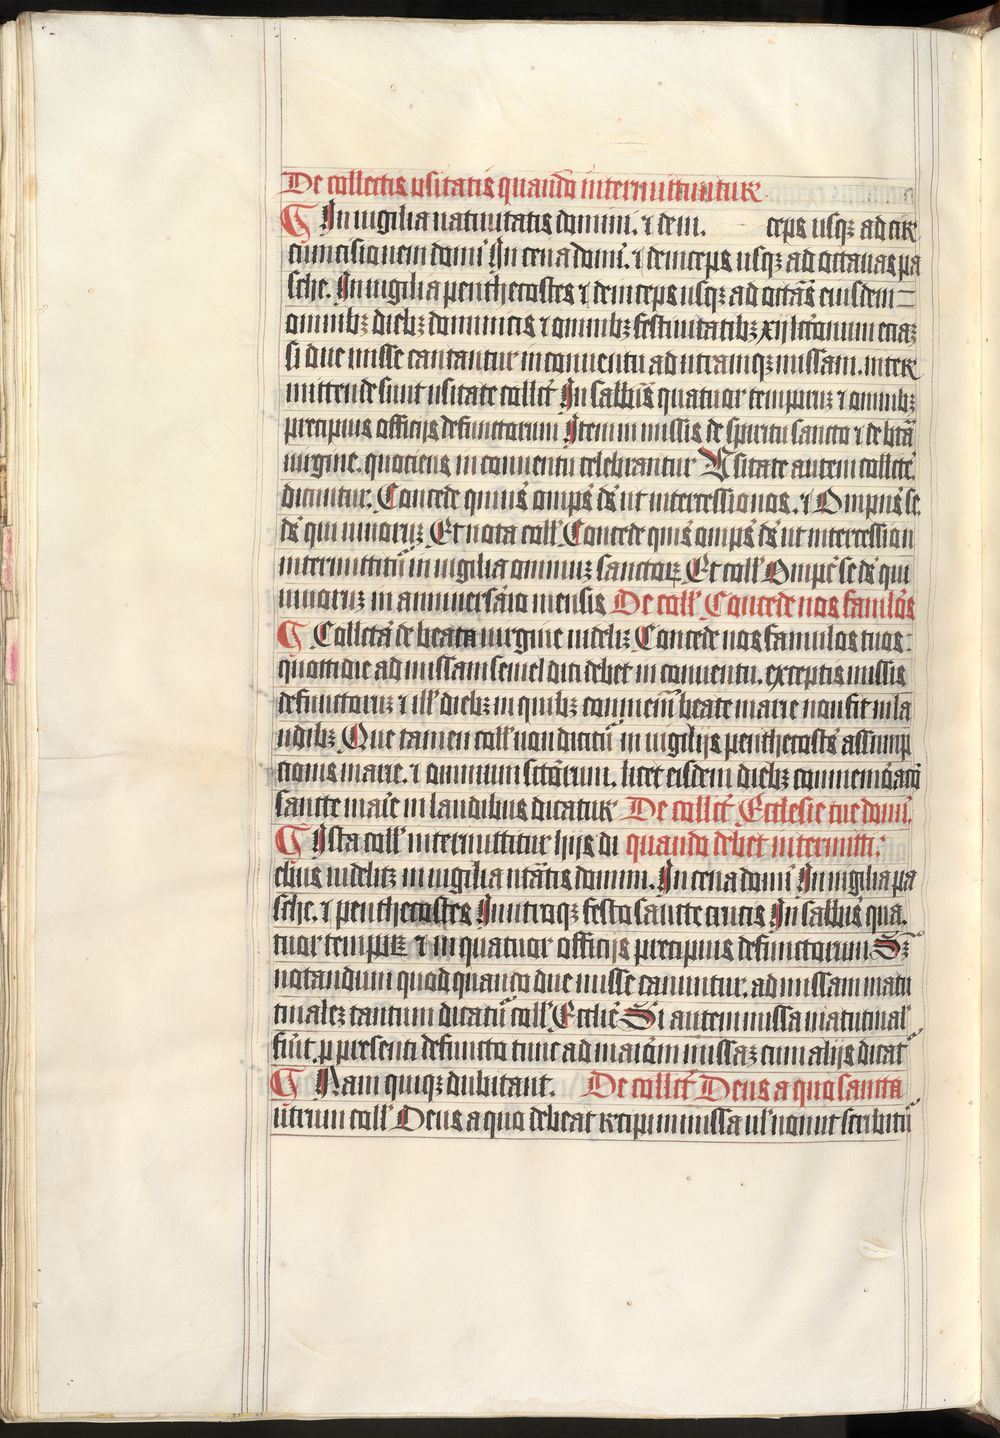 De collectis usitatis quando intermittuntur
In vigilia nativitatis domini. ⁊ dein. ceps usqꝫ ad cir
cumcisionem domī In cena domī. ⁊ deinceps usqꝫ ad octavas pa
sche. In vigilia penthecostes ⁊ deinceps usqꝫ ad octās eiusdem
omnibꝫ diebꝫ dominicis ⁊ omnibꝫ festivitatibꝫ xij lcōnum eciaꝫ
si due misse cantantur in conventu ad utramqꝫ missam. inter
mittende sunt usitate collcē In sabbīs quatuor tempruꝫ ⁊ omnibꝫ
precipuis officijs defunctorum Item in missis de spiritu sancto ⁊ de btā
virgine. quociens in conventu celebrantur Usitate autem collcē
dicuntur. Concede qumīs omps̄ ds̄ ut intercessio nos. ⁊ Ompns̄ se.
ds̄ qui vivoruꝫ Et nota coll̄ Concede qmīs omps̄ ds̄ ut intercession
intermittitū in vigilia omniuꝫ sanctorꝫ Et coll̄ Ompc̄ se ds̄ qui
vivoruꝫ in anniversārio mensis De coll̄ Concede nos famlōs
Collctā de beata virgine videliꝫ Concede nos famulos tuos
quottidie ad missam semel dici debet in conventu. exceptis missis
defunctoruꝫ ⁊ ill̄ diebꝫ in quibꝫ commem̄ beate marie non fit in la
udibꝫ Que tamen coll̄ non dicitū in vigilijs penthecostē assump
cionis marie. ⁊ omnium sctōrum. licet eisdem diebꝫ commemōacō
sancte marīe in laudibus dicatur De collcē Ecclesie tue domī.
Ista coll̄ intermittitur hijs di quando debet intermitti
ebus videlitꝫ in vigilia ntātis domini. In cena domī In vigilia pa
sche. ⁊ penthecostes In utroqꝫ festo sancte crucis In sabbīs qua.
tuor tempꝝ ⁊ in quatuor officijs precipuis defunctorum Sꝫ
notandum quod quando due misse canuntur. ad missam matu
tinaleꝫ tantum dicatū coll̄ Ecclīe Si autem missa matutinal̄
fūit p presenti defuncto tunc ad maiōem missaꝫ cum alijs dicat̄
Nam quiqꝫ dubitant. De collcē Deus a quo sancta
utrum coll̄ Deus a quo debeat recipi in missa ul̄ non ut scribitū